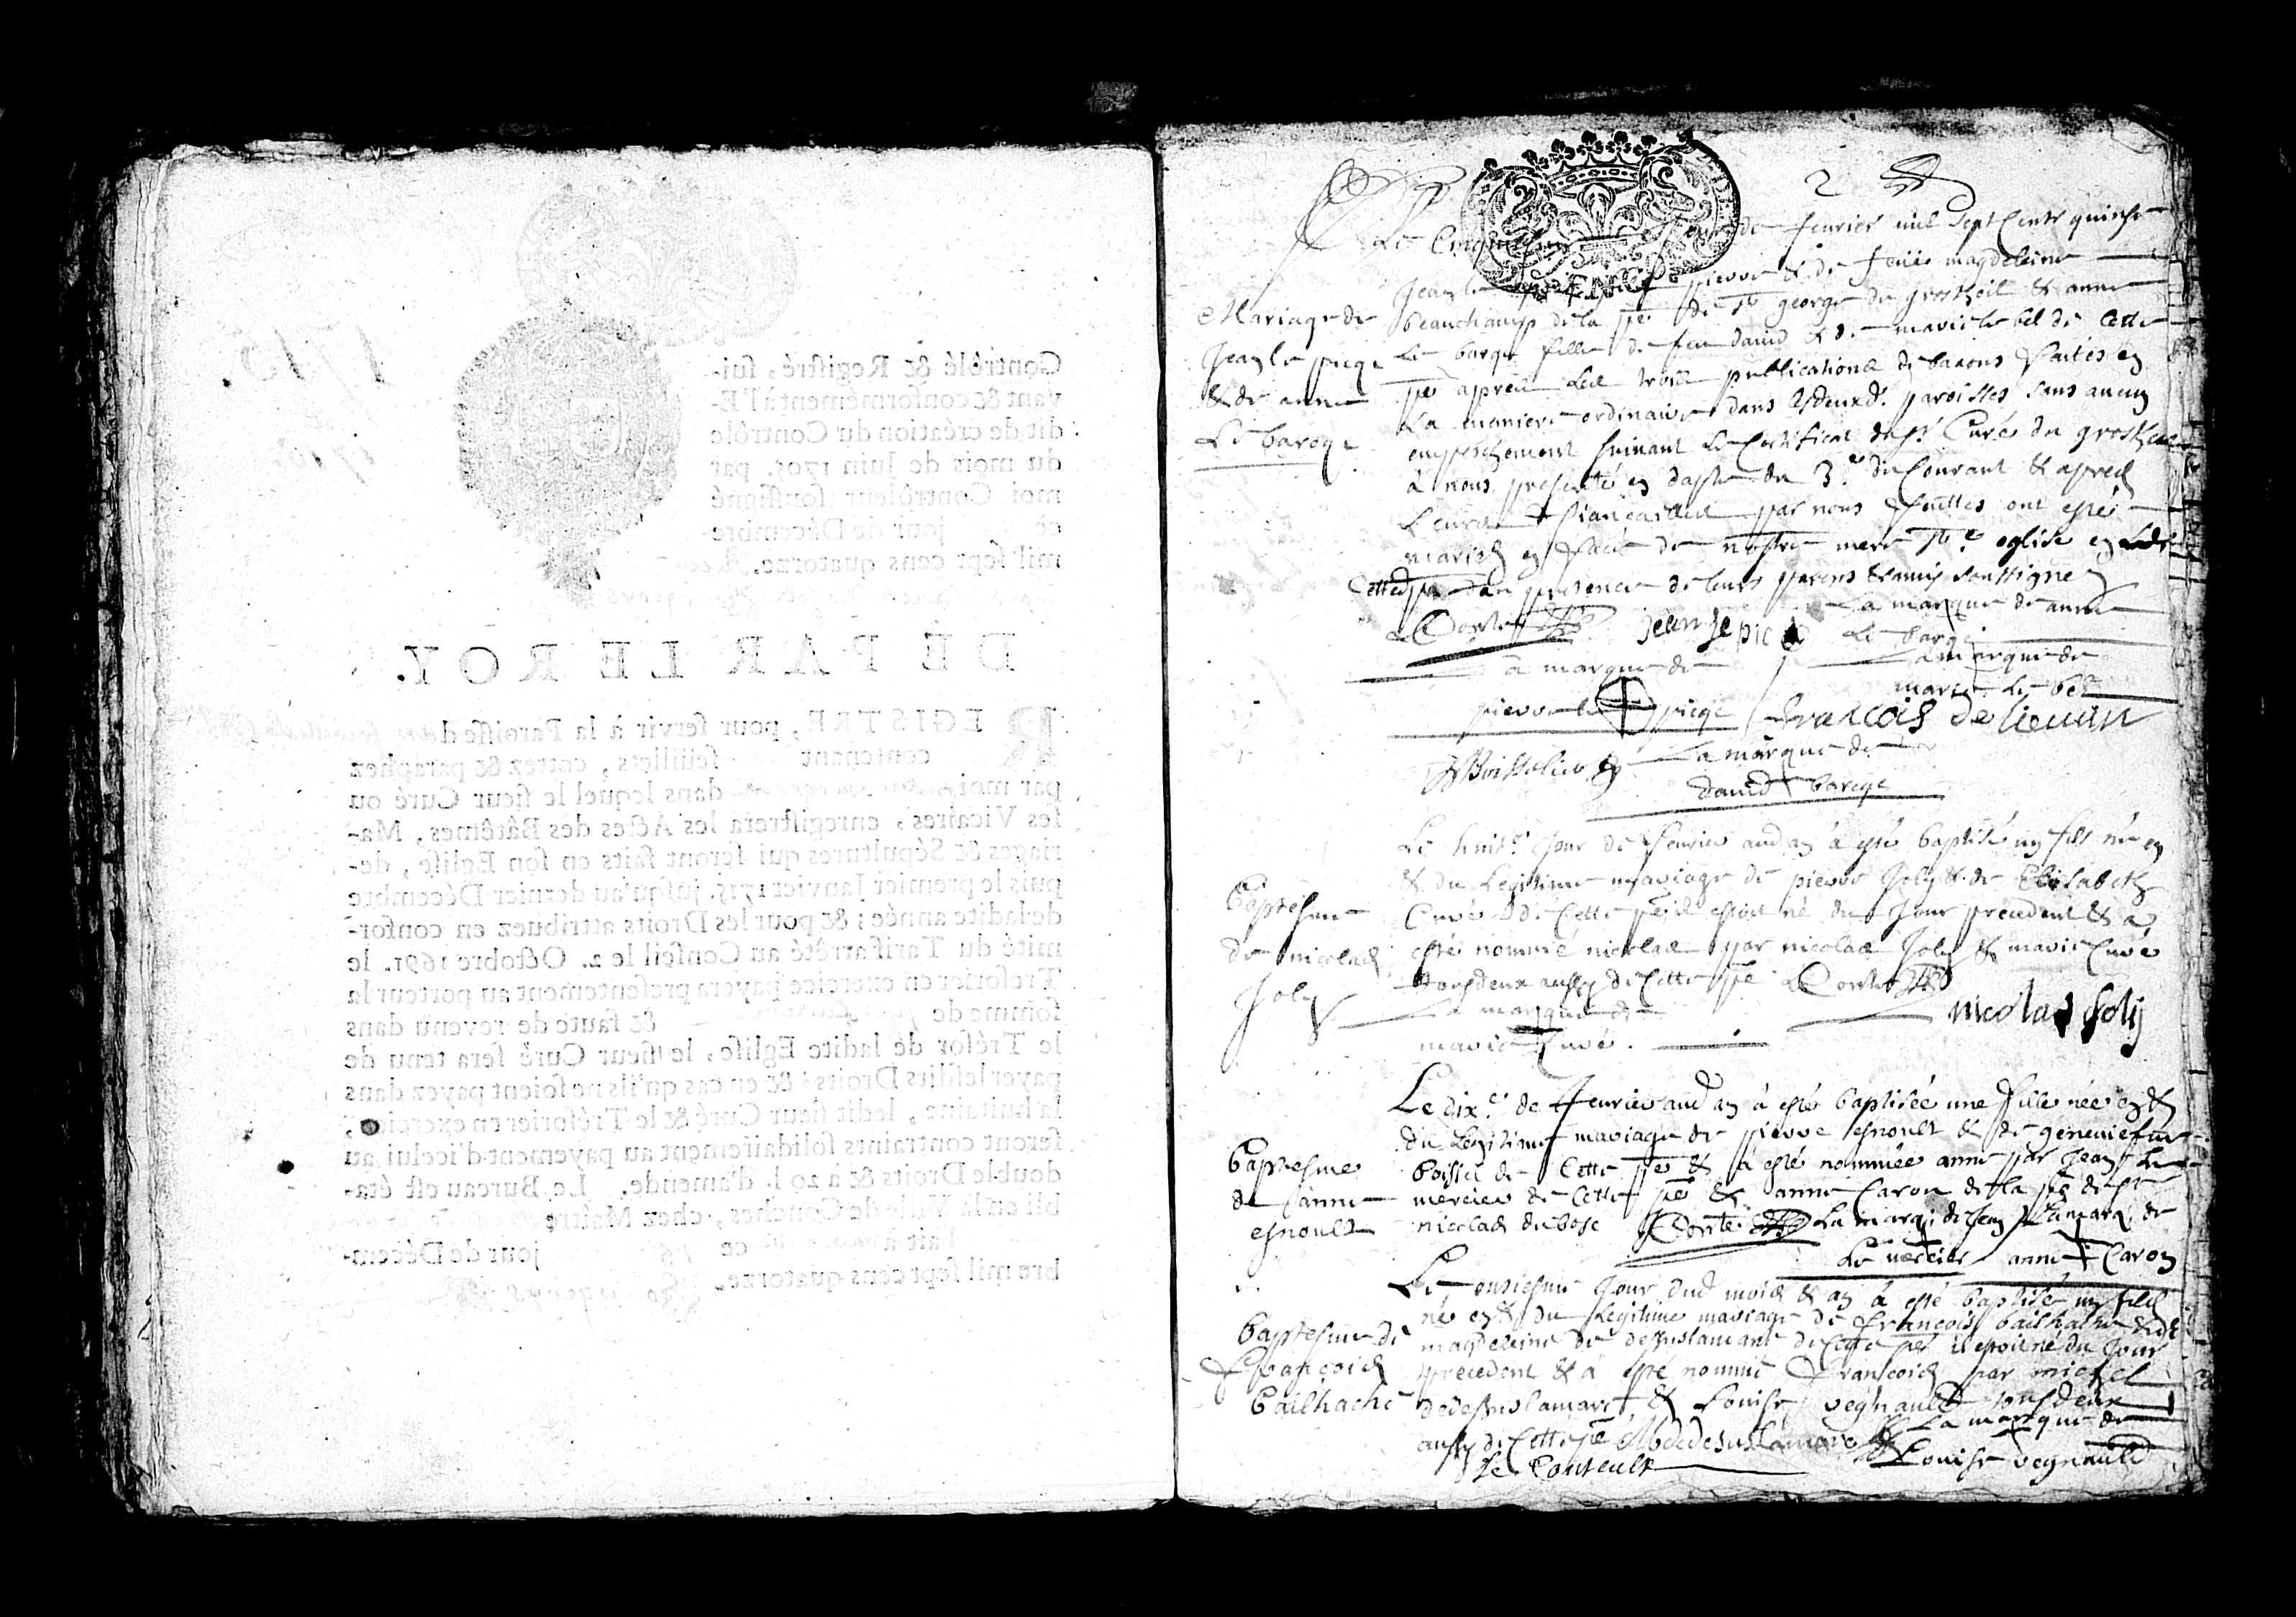 2
Le Cinquiesme jour de feurier mil sept cents quinse
Jean le picqe pierre & de feüe magdeleine
Mariage de
Jean le picqe
& de anne
Le barqe
beauchamp de la pse de st george du grostheil & anne
Le barqe fille de feu dauid & de marie le bel de cette
pse apres les trois publications de banons faites en
La maniere ordinaire dans lesdeuxd. paroisses sans aucun
empeschement suiuant le Certificat du sr Curé du grostheil
à nous presenté en datte du 3.e du Courant & apres
Leurs fiançailles par nous faittes ont esté
mariés en face de nostre mere ste eglise en
Cetted pse dan presence de leurs parens & amis soussignez
Conte jean le pic La marque de anne
Le barqe
La marque de La marque de
marie le bel
pierre le picqe francois de lieuuin
JBoisselier La marque de
dauid barqe
Baptesme
de nicolas
Joly
Le huit.e jour de feurier aud an à esté baptisé un fils né en
& du Legitime mariage de pierre Joly & de Elisabeth
Cuvé de Cette pse il estoit né du Jour precedent & a
esté nommé nicolas par nicolas Joly & marie Cuvé
tousdeux aussy de Cette pse Conte
La marque de nicolas Joly
marie Cuvé.
Baptesme
de anne
esnoult
Le dix.e de feurier aud an à esté baptisée une fille née en &
du Legitime mariage de pierre esnoult & de geneuiefue
boissel de Cette pse & à esté nommée anne par Jean Le
mercier de Cette pse & anne Caron de la pse de st
nicolas du bosc Conte La marq. de Jean La marq. de
Le mercier anne Caron
Baptesme de
françois
Bailhache
Le onsiesme Jour dud mois & an à esté baptisé un fils
né en & du Legitime mariage de françois bailhache & de
magdeleine de dessuslamare de Cette pse il estoit né du Jour
precedent & à esté nommé françois par michel
dedessuslamare & Louise regnault tousdeux
aussy de Cette pse Mdedesuslamare La marque de
Le Conteult Louise regnauld
1715.
Contrôlé & Registré, sui-
vant & conformément à l'E-
dit de création du Contrôle
du mois de Juin 1705. par
moi Contrôleur soussigné
ce jour de Décembre
mil sept cens quatorze.
DE PAR LE ROY.
REGISTRE, pour servir à la Paroisse d
contenant feüillets, cottez & paraphez
par moi dans lequel le sieur Curé ou
ses Vicaires, enregistrera les Actes des Bâtêmes, Ma-
riages & Sépultures qui seront faits en son Eglise, de-
puis le premier Janvier 1715. jusqu'au dernier Décembre
de ladite année; & pour les Droits attribuez en confor-
mité du Tarif arrêté au Conseil le 2. Octobre 1691. le
Tresorier en exercice payera presentement au porteur la
somme de & faute de revenu dans
le Trésor de ladite Eglise, le sieur Curé sera tenu de
payer lesdits Droits; & en cas qu'ils ne soient payez dans
la huitaine, ledit sieur Curé & le Trésorier en exercice,
seront contraints solidairement au payement d'icelui au
double Droits & à 20 l. d'amende. Le Bureau est éta-
bli en la Ville de Conches, chez Maître
Fait à ce 16 jour de Décem-
bre mil sept cens quatorze.